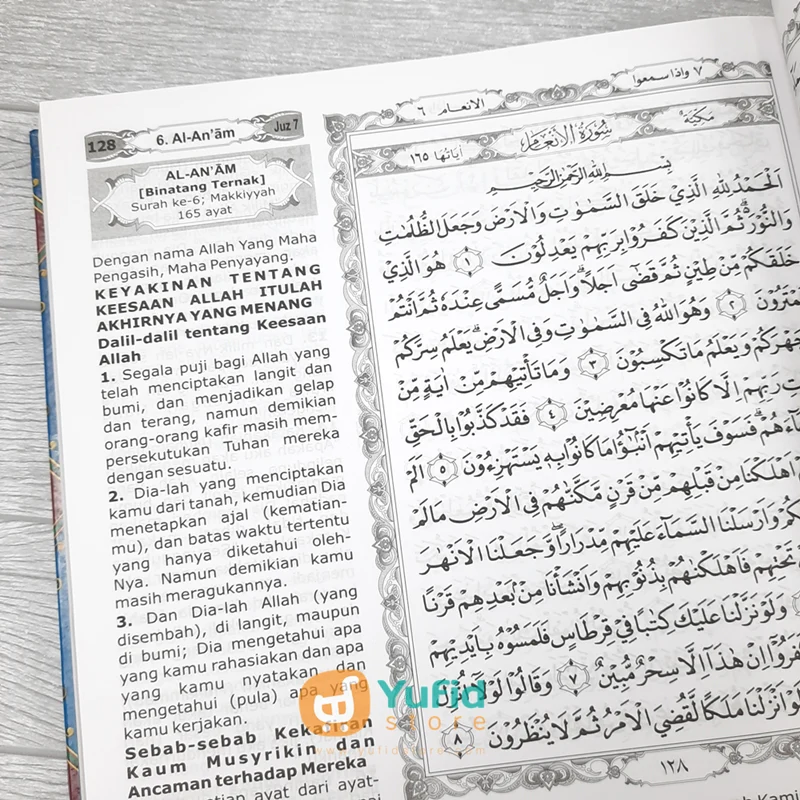 128
6. Al-An'ām
Juz 7
AL-AN'ĀM
[Binatang Ternak]
Surah ke-6; Makkiyyah
165 ayat
Dengan nama Allah Yang Maha
Pengasih, Maha Penyayang.
KEYAKINAN TENTANG
KEESAAN ALLAH ITULAH
AKHIRNYA YANG MENANG
Dalil-dalil tentang Keesaan
Allah
1. Segala puji bagi Allah yang
telah menciptakan langit dan
bumi, dan menjadikan gelap
dan terang, namun demikian
orang-orang kafir masih mem-
persekutukan Tuhan mereka
dengan sesuatu.
2. Dia-lah yang menciptakan
kamu dari tanah, kemudian Dia
menetapkan ajal (kematian-
mu), dan batas waktu tertentu
yang hanya diketahui oleh-
Nya. Namun demikian kamu
masih meragukannya.
3. Dan Dia-lah Allah (yang
disembah), di langit, maupun
di bumi; Dia mengetahui apa
yang kamu rahasiakan dan apa
yang kamu nyatakan dan
mengetahui (pula) apa yang
kamu kerjakan.
Sebab-sebab Kekafiran
Kaum Musyrikin dan
Ancaman terhadap Mereka
ayat dari ayat-
الانعام ٦
٧ واذا سمعوا
اٰيَاتُهَا ١٦٥
سُوْرَةُ الْاَنْعَامِ
مَكِّيَّةٌ
بِسْمِ اللهِ الرَّحْمٰنِ الرَّحِيْمِ
اَلْحَمْدُ لِلّٰهِ الَّذِيْ خَلَقَ السَّمٰوٰتِ وَالْاَرْضَ وَجَعَلَ الظُّلُمٰتِ
وَالنُّوْرَ ۗ ثُمَّ الَّذِيْنَ كَفَرُوْا بِرَبِّهِمْ يَعْدِلُوْنَ ١ هُوَ الَّذِيْ
خَلَقَكُمْ مِّنْ طِيْنٍ ثُمَّ قَضٰٓى اَجَلًا ۗ وَاَجَلٌ مُّسَمًّى عِنْدَهٗ ثُمَّ اَنْتُمْ
تَمْتَرُوْنَ ٢ وَهُوَ اللهُ فِى السَّمٰوٰتِ وَفِى الْاَرْضِ ۗ يَعْلَمُ سِرَّكُمْ
وَجَهْرَكُمْ وَيَعْلَمُ مَا تَكْسِبُوْنَ ٣ وَمَا تَأْتِيْهِمْ مِّنْ اٰيَةٍ مِّنْ
تِ رَبِّهِمْ اِلَّا كَانُوْا عَنْهَا مُعْرِضِيْنَ ٤ فَقَدْ كَذَّبُوْا بِالْحَقِّ
جَاۤءَهُمْ ۗ فَسَوْفَ يَأْتِيْهِمْ اَنْۢبٰۤـؤُا مَا كَانُوْا بِهٖ يَسْتَهْزِءُوْنَ ٥ اَلَمْ
اَهْلَكْنَا مِنْ قَبْلِهِمْ مِّنْ قَرْنٍ مَّكَّنّٰهُمْ فِى الْاَرْضِ مَا لَمْ
كُمْ وَاَرْسَلْنَا السَّمَاۤءَ عَلَيْهِمْ مِّدْرَارًا ۖ وَّجَعَلْنَا الْاَنْهٰرَ
تَحْتِهِمْ فَاَهْلَكْنٰهُمْ بِذُنُوْبِهِمْ وَاَنْشَأْنَا مِنْۢ بَعْدِهِمْ قَرْنًا
وَلَوْ نَزَّلْنَا عَلَيْكَ كِتٰبًا فِيْ قِرْطَاسٍ فَلَمَسُوْهُ بِاَيْدِيْهِمْ
كَفَرُوْٓا اِنْ هٰذَآ اِلَّا سِحْرٌ مُّبِيْنٌ ٧ وَقَالُوْا لَوْلَآ اُنْزِلَ
وَلَوْ اَنْزَلْنَا مَلَكًا لَّقُضِيَ الْاَمْرُ ثُمَّ لَا يُنْظَرُوْنَ ٨
١٢٨
Yufid
store
www.yufidstore.com
Kami